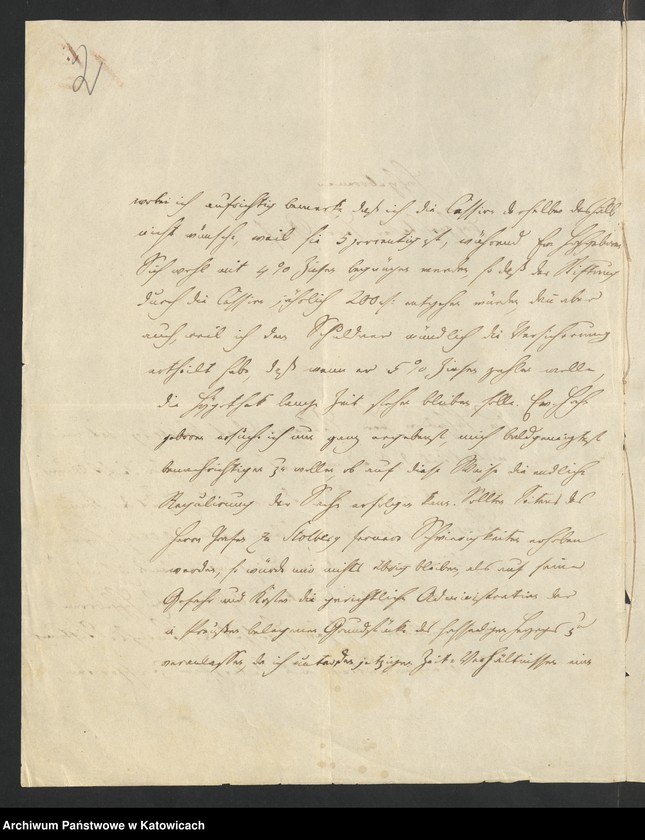 2
wobei ich aufrichtig bemerke, daß ich die Cession derselben deshalb
nicht wünsche, weil sie 5 procentig ist, während Ew. Hochgeboren
Sich wohl mit 4 % Zinsen begnügen werden, so daß der Stiftung
durch die Cession jährlich 200 f. entgehen würden, dann aber
auch, weil ich dem Schuldner mündlich die Versicherung
ertheilt habe, daß wenn er 5 % Zinsen zahlen wolle,
die Hypothek lange Zeit stehen bleiben solle. Ew. Hoch-
geboren ersuche ich nun ganz ergebenst, mich baldgeneigtest
benachrichtigen zu wollen, ob auf diese Weise die endliche
Regulirung der Sache erfolgen kann. Sollten Seitens des
Herrn Grafen zu Stolberg fernere Schwierigkeiten erhoben
werden, so würde mir nichts übrig bleiben, als auf seine
Gefahr und Kosten die gerichtliche Administration der
in Preußen belegenen Grundstücke des Herzogs zu
veranlassen, da ich unter den jetzigen Zeit-Verhältnissen
Archiwum Państwowe w Katowicach